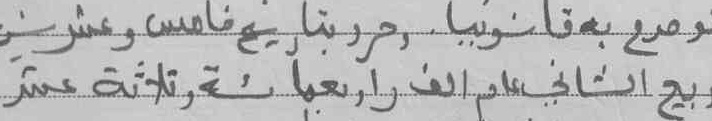 به قانونيا. وحرر بتاريخ خامس وعشرين
ربيع الثاني عام الف واربعمائة وثلاثة عشر